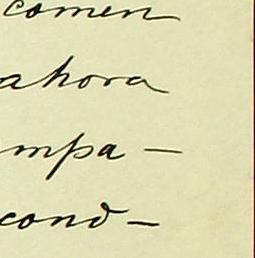 comen
ahora
mpa —
cond —